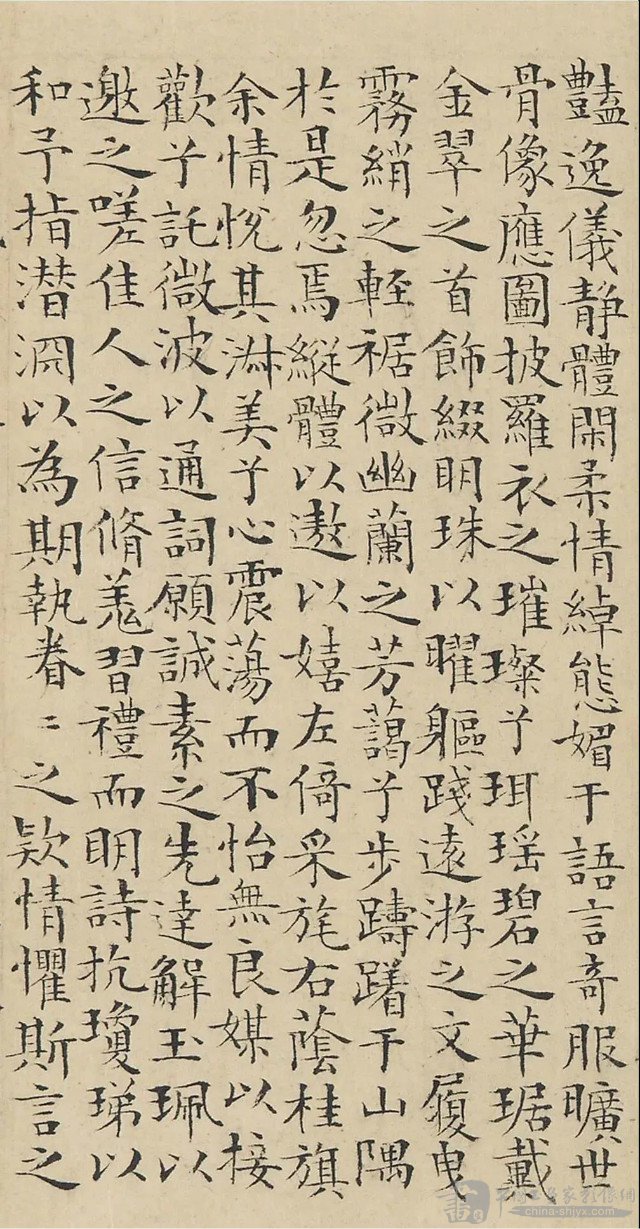 豔逸儀静體閑柔情綽態媚于語言奇服曠世
骨像應圖披羅衣之璀璨兮珥瑶碧之華琚戴
金翠之首飾綴明珠以曜軀踐遠游之文履曳
霧綃之輕裾微幽蘭之芳藹兮步躊躇于山隅
於是忽焉縱體以遨以嬉左倚采旄右蔭桂旗
余情悅其淋美兮心震蕩而不怡無良媒以接
歡兮託微波以通詞願誠素之先達解玉珮以
邀之嗟佳人之信脩羌習禮而明詩抗瓊珶以
和予指潜淵以為期執眷〻之欵情懼斯言之
china-shjyx.com